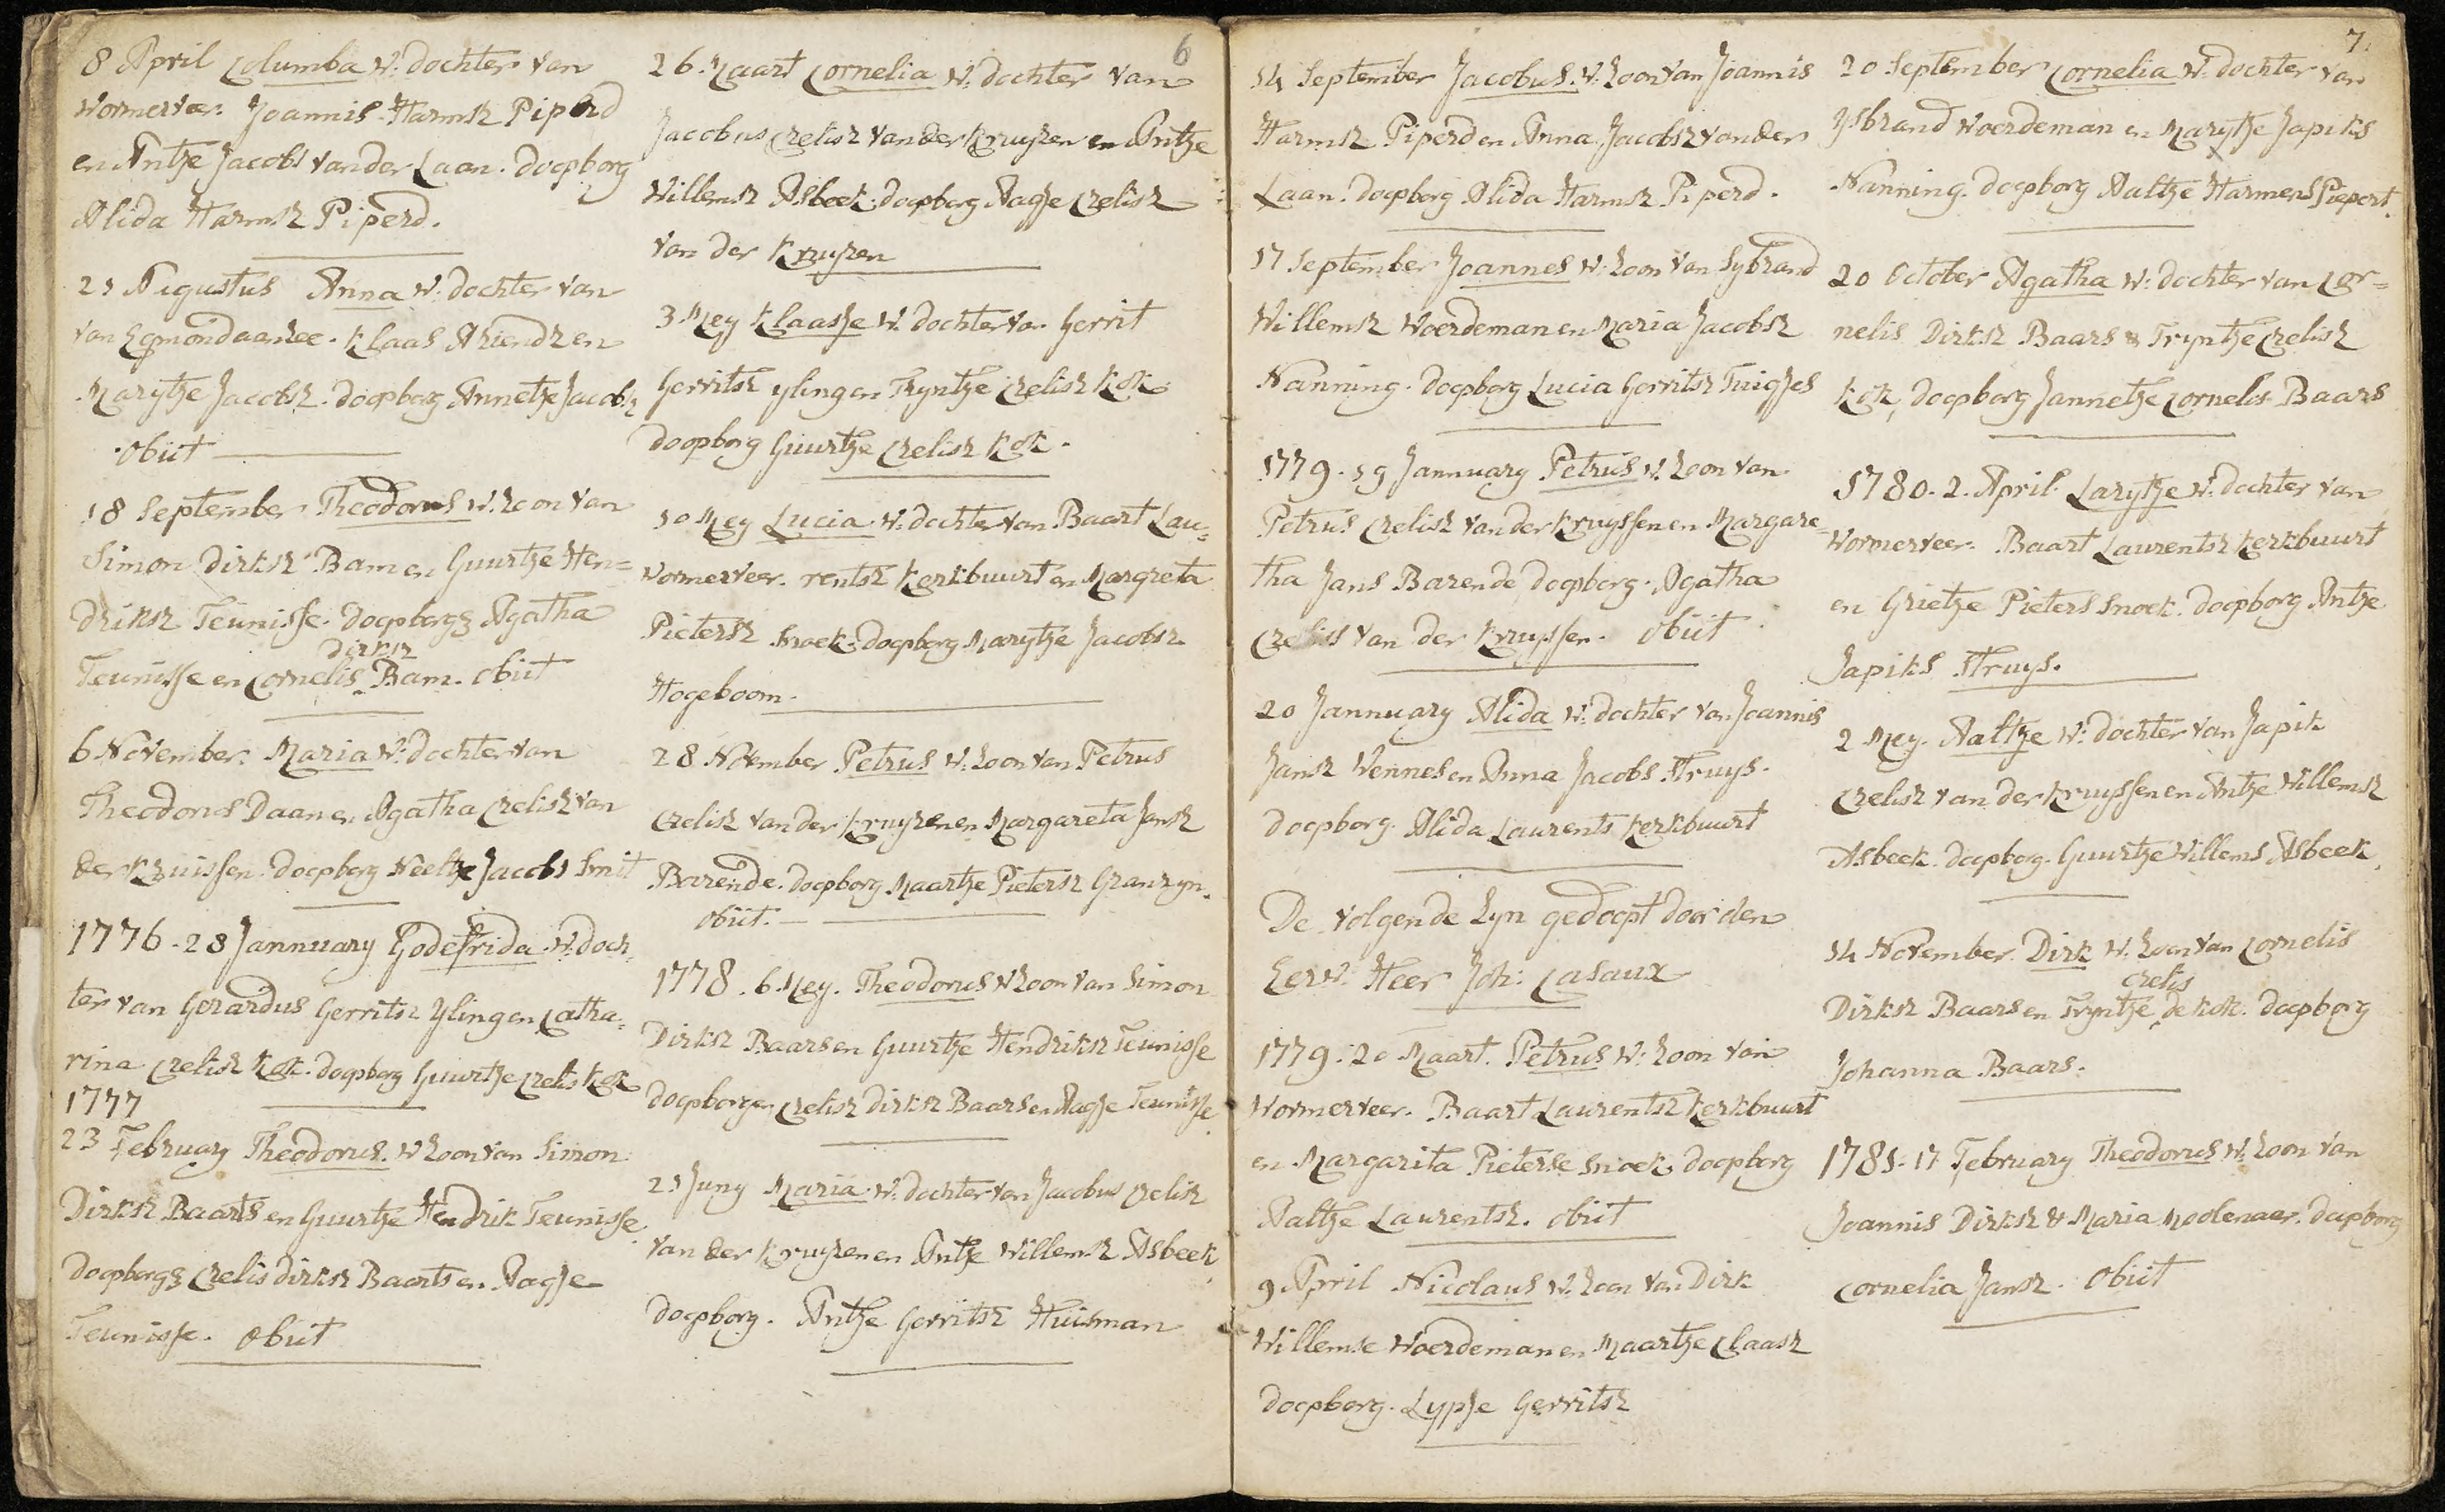 6
8 April Columba w: dochter van
Wormerveer. Joannis Harmsz Piperd
en Antje Jacobs van der Laan. doopborg
Alida Harmsz Piperd.
21 Augustus Anna w: dochter van
van Egmondaanzee. Klaas Ariendz en
Marytje Jacobsz. doopborg Annetje Jacobsz
obiit
18 September Theodorus w. zoon van
Simon Dirksz Bam en Guurtje Hen=
driksz Teunisse. doopborgz Agatha
dirksz
Teunisse en Cornelis Bam. obiit
6 November. Maria w: dochter van
Theodorus Daan en Agatha Crelisz van
der Kruissen. doopborg Neeltje Jacobs Smit
1776. 28 Jannuary Godefrida w. doch,
ter van Gerardus Gerritsz Yling en Catha=
rina Crelisz Kok. doopborg Guurtje Crelis Kok
1777
23 February Theodorus. w zoon van Simon
Dirksz Baarts en Guurtje Hendrik Teunisse
doopborgz Crelis dirksz Baarts en Aagje
Teunisse. obiit
26. Maart Cornelia w: dochter van
Jacobus Crelisz van der Kruyzen en Antje
Willemsz Asbeek. doopborg Aagje Crelisz
van der Kruyzen
3 Mey Klaasje w. dochter van Gerrit
Gerritsz Yling en Tryntje Crelisz Kok
doopborg Guurtje Crelisz Kok.
10 Mey Lucia w: dochter van Baart Lau=
Wormerveer. rentsz Kerkbuurt en Margreta
Pietersz Snoek. doopborg Marytje Jacobsz
Hogeboom.
28 November Petrus w. zoon van Petrus
Crelisz van der Kruyzen en Margareta Jansz
Barende. doopborg Maartje Pietersz Granzyn.
obiit.
1778. 6 Mey. Theodorus w zoon van Simon
Dirksz Baars en Guurtje Hendriksz Teunisse
doopborgen Crelisz Dirksz Baars en Aagje Teunisse
21 Juny Maria w: dochter van Jacobus Crelisz
van der Kruyzen en Antje Willemsz Asbeek
doopborg. Antje Gerritsz Huisman
7.
14 September Jacobus. w. zoon van Joannis
Harmsz Piperd en Anna Jacobsz vander
Laan. doopborg Alida Harmsz Piperd.
17 September Joannes w. zoon van Sybrand
Willemsz Woerdeman en Maria Jacobsz
Nanning. doopborg Lucia Gerritsz Tuigjes
1779. 19 Jannuary Petrus w. zoon van
Petrus Crelisz van der Kruyssen en Margare=
tha Jans Barende doopborg. Agatha
Creliss van der Kruyssen. obiit
20 Jannuary Alida w: dochter van Joannis
Jansz Wennes en Anna Jacobs Struys.
doopborg. Alida Laurents Kerkbuurt
De volgende zyn gedoopt door den
Eerw. Heer Joh: Casaux
1779. 20 Maart. Petrus w: zoon van
Wormerveer. Baart Laurentsz Kerkbuurt
en Margarita Pieterse Snoek. doopborg
Aaltje Laurentsz. obiit
9 April Nicolaus w. zoon van Dirk
Willemse Woerdeman en Maartje Claasz
doopborg. Lypje Gerritsz
20 September Cornelia w. dochter van
Ysbrand Woerdeman en Marytje Japiks
Nanning. doopborg Aaltje Harmens Piepert.
20 October Agatha w: dochter van Cor=
nelis Dirksz Baars & Tryntje Crelisz
Kok, doopborg Jannetje Cornelis Baars
1780. 2. April. Larytje w: dochter van
Wormerveer. Baart Laurentsz Kerkbuurt
en Grietje Pieters Snoek. doopborg Antje
Japiks Struys.
2 Mey. Aaltje w: dochter van Japik
Crelisz van der Kruyssen en Antje Willemsz
Asbeek. doopborg. Guurtje Willems Asbeek,
14 November. Dirk w. zoon van Cornelis
Crelis
Dirksz Baars en Tryntje de Kok. doopborg
Johanna Baars.
1781. 17 February Theodorus w. zoon van
Joannis Dirksz & Maria Moolenaer. doopborg
Cornelia Jansz. obiit